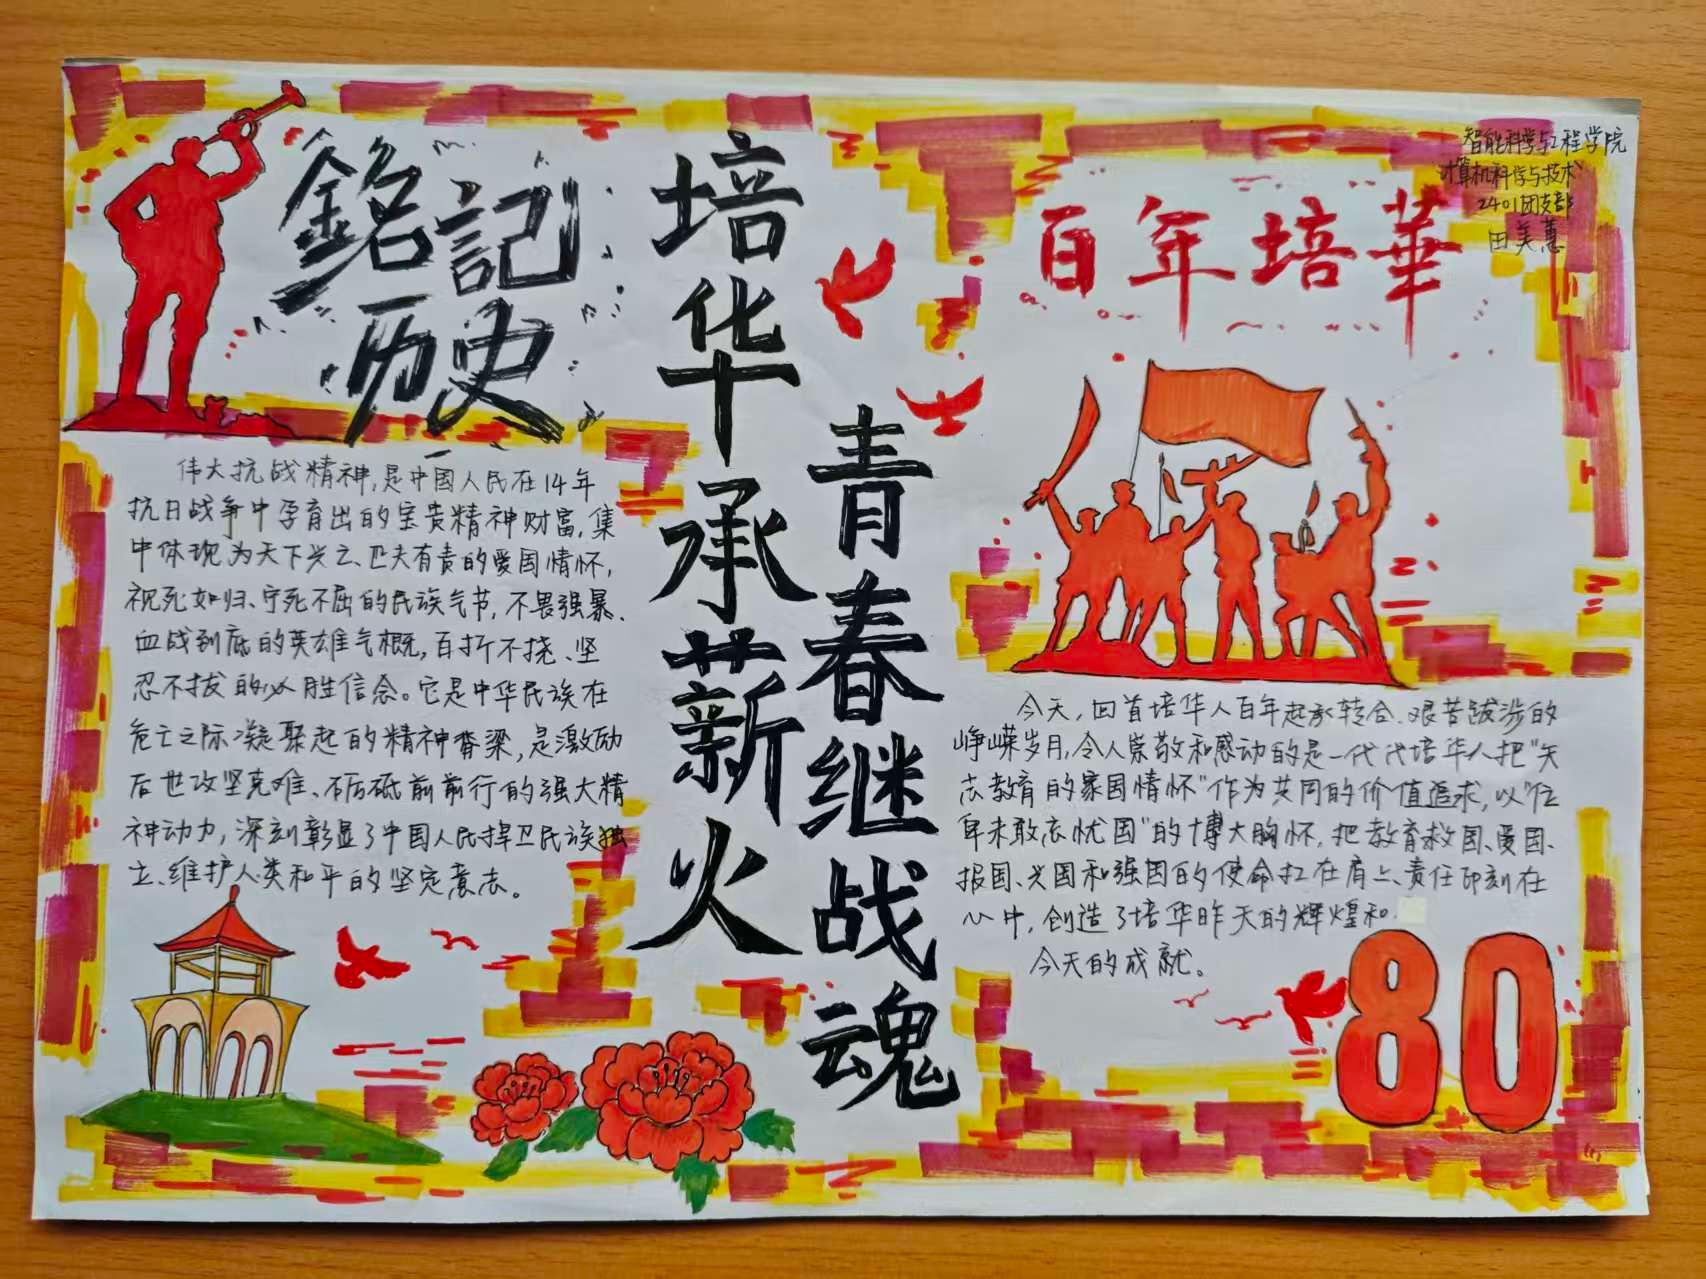 銘記
历史
伟大抗战精神,是中国人民在14年
抗日战争中孕育出的宝贵精神财富,集
中体现为天下兴亡、匹夫有责的爱国情怀,
视死如归、宁死不屈的民族气节,不畏强暴、
血战到底的英雄气概,百折不挠、坚
忍不拔的必胜信念。它是中华民族在
危亡之际凝聚起的精神脊梁,是激励
后世攻坚克难、砺砥前前行的强大精
神动力,深刻彰显了中国人民捍卫民族独
立、维护人类和平的坚定意志。
培华承薪火
青春继战魂
智能科学与工程学院
计算机科学与技术
2401团支部
田美蕙
百年培華
今天,回首培华人百年起承转合、艰苦跋涉的
峥嵘岁月,令人崇敬和感动的是一代代培华人把"矢
志教育的家国情怀"作为共同的价值追求,以"位
卑未敢忘忧国"的博大胸怀,把教育救国、爱国、
报国、兴国和强国的使命扛在肩上、责任印刻在
心中,创造了培华昨天的辉煌和
今天的成就。
80